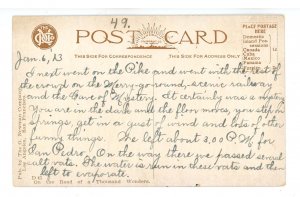 49.
POST CARD
PLACE POSTAGE
HERE
Domestic
Island Pos-
sessions
Canada
Cuba
Mexico
Panama
THIS SIDE FOR CORRESPONDENCE
THIS SIDE FOR ADDRESS ONLY
Jan. 6, 13
I next went on the Pike and went with the rest of
the crowd on the Merry-go-round, scenic railway
and the Cave of Mystery. It certainly was a mystery
You are in the dark and the floor moves, you step on
springs, get in a gust of wind and lots of other
funny things. We left about 3,00 P.M for
San Pedro. On the way there we passed several
salt vats. The water is run in these vats and then
left to evaporate.
On the Road of a Thousand Wonders.